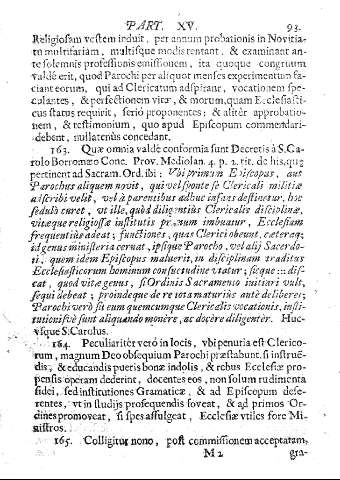 PART. XV. 93.
Religiosam vestem induit, per annum probationis in Novitia-
tu multifariam, multisque modis tentant, & examinant an-
te solemnis professionis emissionem, ita quoque congruum
valdè erit, quod Parochi per aliquot menses experimentum fa-
ciant eorum, qui ad Clericatum adspirant, vocationem spe-
culantes, & perfectionem vitæ, & morum, quam Ecclesiasti-
cus status requirit, seriò proponentes; & aliter approbatio-
nem, & testimonium, quo apud Episcopum commendari
debent, nullatenùs concedant.
163. Quæ omnia valdè conformia sunt Decretis à S. Ca-
rolo Borromæo Conc. Prov. Mediolan. 4. p. 2. tit. de his, quę
pertinent ad Sacram. Ord. ibi: Vbi primum Episcopus, aut
Parochus aliquem novit, qui vel sponte se Clericali militiæ
adscribi velit, vel à parentibus adhuc infans destinetur, hoc
sedulò curet, vt ille, quòd diligentiùs Clericalis disciplinæ,
vitæque religiosæ institutis imbuatur, Ecclesiam
frequentiùs adeat; functiones, quas Clerici obeunt, cæteraq;
id genus ministeria cernat, ipsique Parocho, vel alij Sacerdo-
ti, quem idem Episcopus maluerit, in disciplinam traditus
Ecclesiasticorum hominum consuetudine vtatur; sicque dis-
cat, quod vitæ genus, si Ordinis Sacramento initiari vult,
sequi debeat; proindeque de re tota maturiùs antè deliberet;
Parochi verò sit eum quemcumque Clericalis vocationis, insti-
tutionisvè sunt aliquando monère, ac docère diligentèr. Huc-
vsque S. Carolus.
164. Peculiaritèr verò in locis, vbi penuria est Clerico-
rum, magnum Deo obsequium Parochi præstabunt, si instruē-
dis, & educandis pueris bonæ indolis, & rebus Ecclesiæ pro-
pensis operam dederint, docentes eos, non solum rudimenta
fidei, sed institutiones Gramaticæ, & ad Episcopum defe-
rentes, vt in studijs prosequendis foveat, & ad primos Or-
dines promoveat, si spes affulgeat, Ecclesiæ vtiles fore Mi-
nistros.
165. Colligitur nono, post commissionem acceptatam,
M 2 gra-